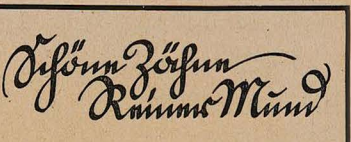 Schöne Zähne
Reiner Mund